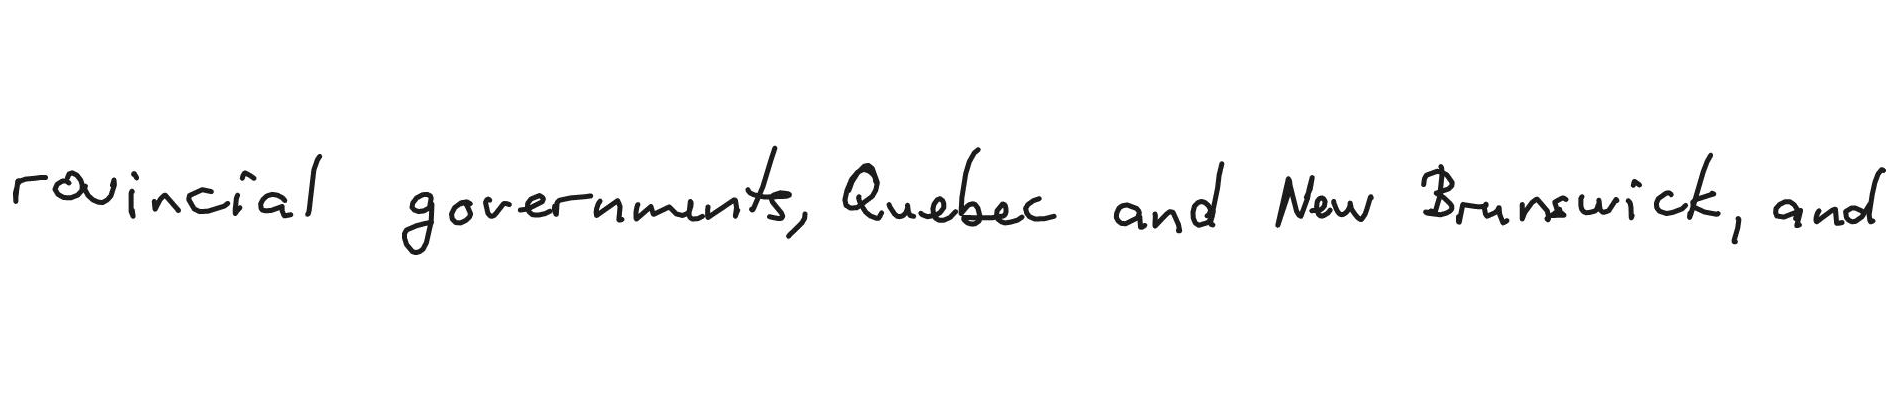 rovincial governments, Quebec and New Brunswick, and